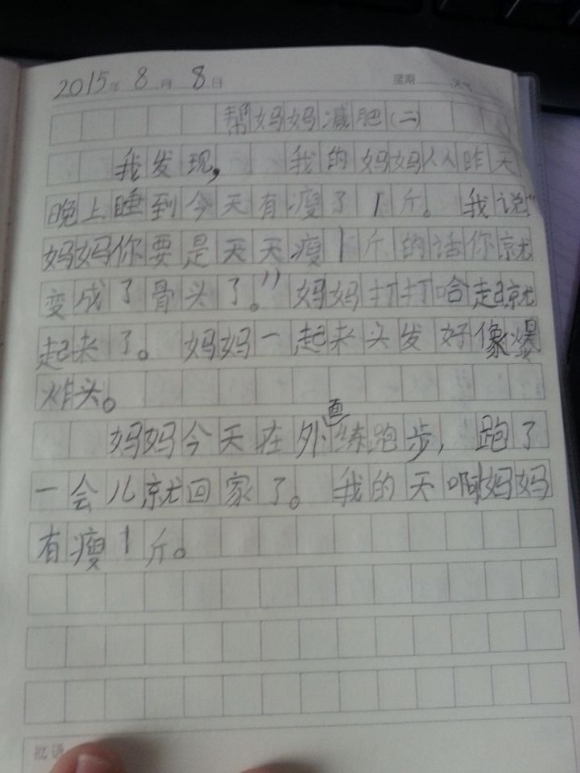 2015年 8月 8日 星期
帮妈妈减肥(二)
我发现, 我的妈妈从昨天
晚上睡到今天有瘦了1斤。我说"
妈妈你要是天天瘦1斤的话你就
变成了骨头了。"妈妈打打哈起就
起来了。妈妈一起来头发好像爆
炸头。
妈妈今天在外面练跑步,跑了
一会儿就回家了。我的天啊妈妈
有瘦1斤。
批语